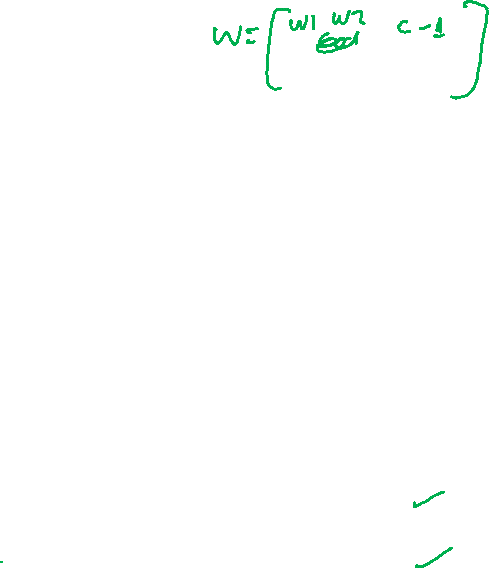 W = [ w1 w2 c-1 ]